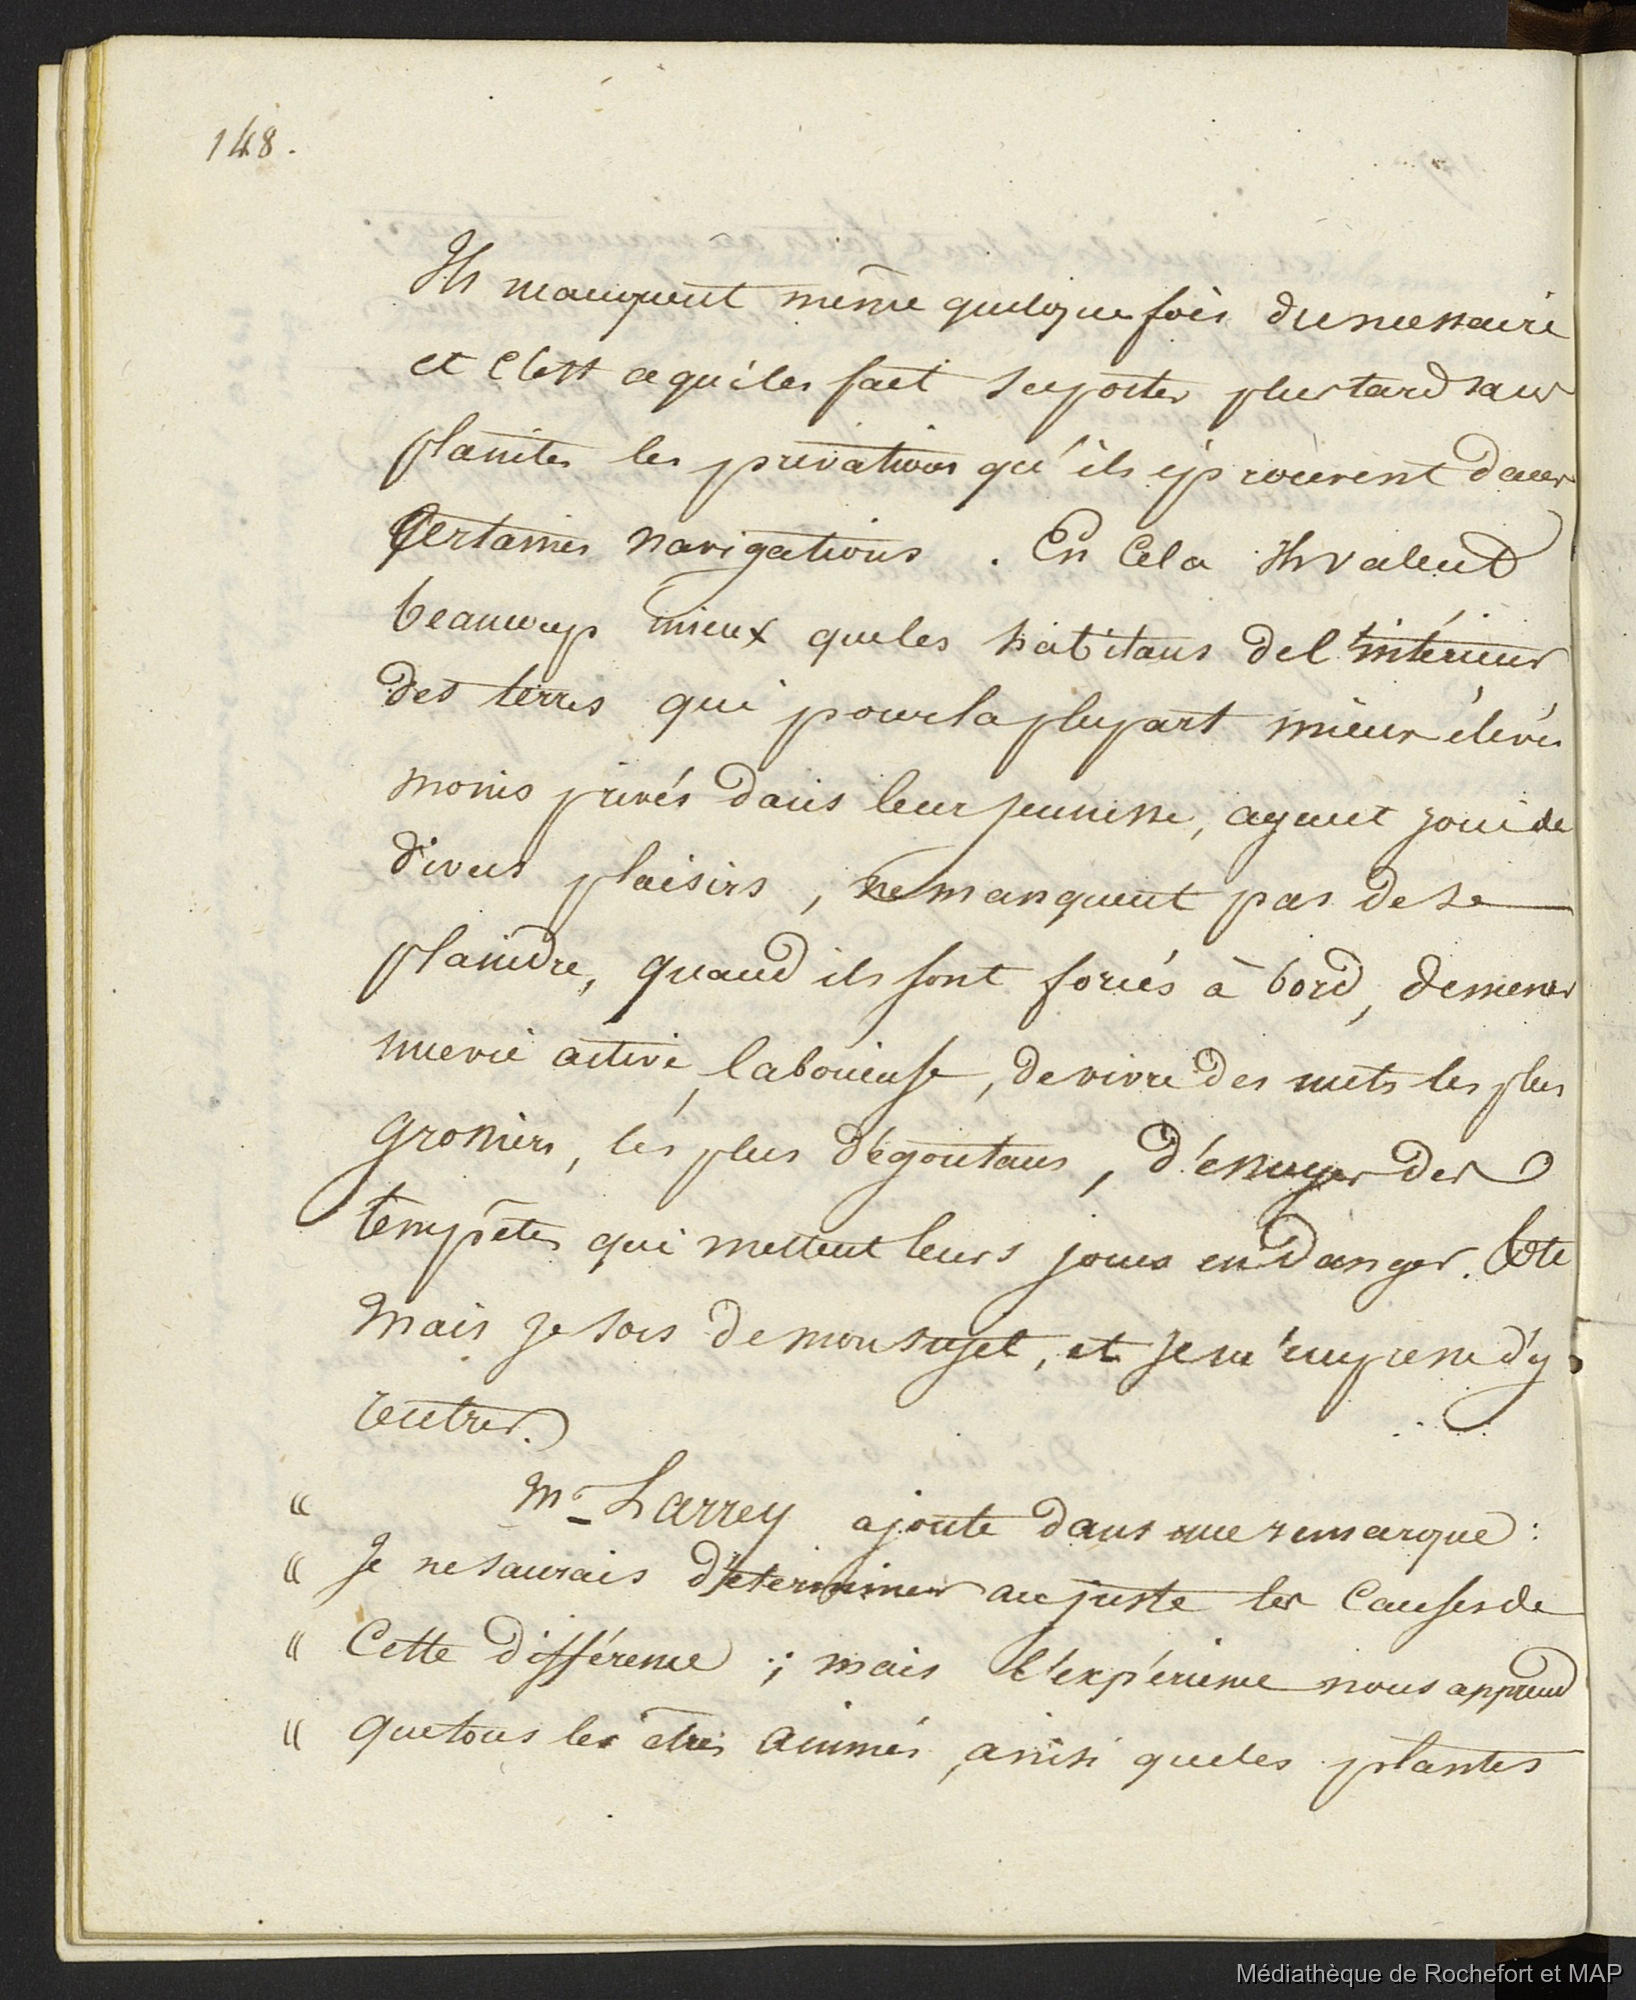 148.
Ils manquent même quelque fois du necessaire
et c'est ce qui les fait suporter plus tard sans
plaintes les privations qu'ils éprouvent dans
certaines navigations. En cela Ils valent
beaucoup mieux que les habitans de l'intérieur
des terres qui pour la plupart mieux élevés
moins privés dans leur jeunesse, ayant joui de
divers plaisirs, ne manquent pas de se
plaindre, quand ils sont forcés à bord, de mener
une vie active, laborieuse, de vivre des mets les plus
grossiers, les plus dégoutans, d'essuyer des
tempêtes qui mettent leurs jours en danger.
Mais je sors de mon sujet, et je m'empresse d'y
rentrer.
" Mr Larrey ajoute dans une remarque :
" Je ne saurais déterminer au juste les causes de
" Cette différence ; mais l'expérience nous apprend
" que tous les êtres animés, ainsi que les plantes
Médiathèque de Rochefort et MAP